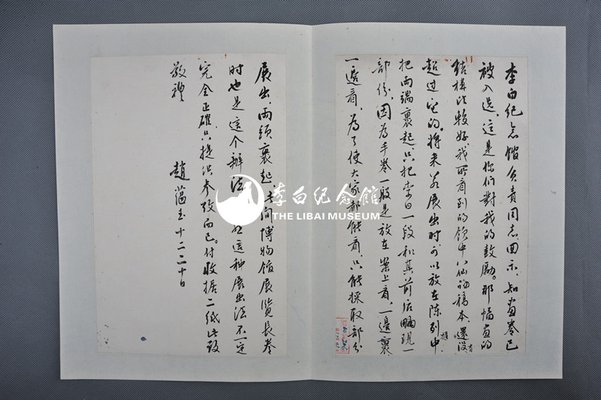 李白纪念馆负责同志回示，知画卷已
被入选，这是你们对我的鼓励。那幅画的
结构比较好，我所看到的饮中八仙的稿本还没有
超过它的，将来若展出时可以放在陈列中
把两端裹起，只把李白一段和其前后
部份，因为手卷一般是放在案上看，一边裹
一边看，为了使大家都能看，只能采取部分
展出，两头裹起，
博物馆展览长卷
时也是这个办法
这种展出法不一定
完全正确，只提供参考而已。付收据二纸 此致
敬礼
赵蕴玉 十二 二十日
李白纪念馆
THE LIBAI MUSEUM